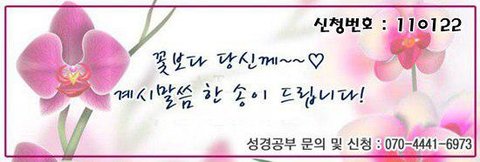 신청번호 : 110122
꽃보다 당신께~~♡
계시말씀 한 송이 드립니다!
성경공부 문의 및 신청 : 070-4441-6973